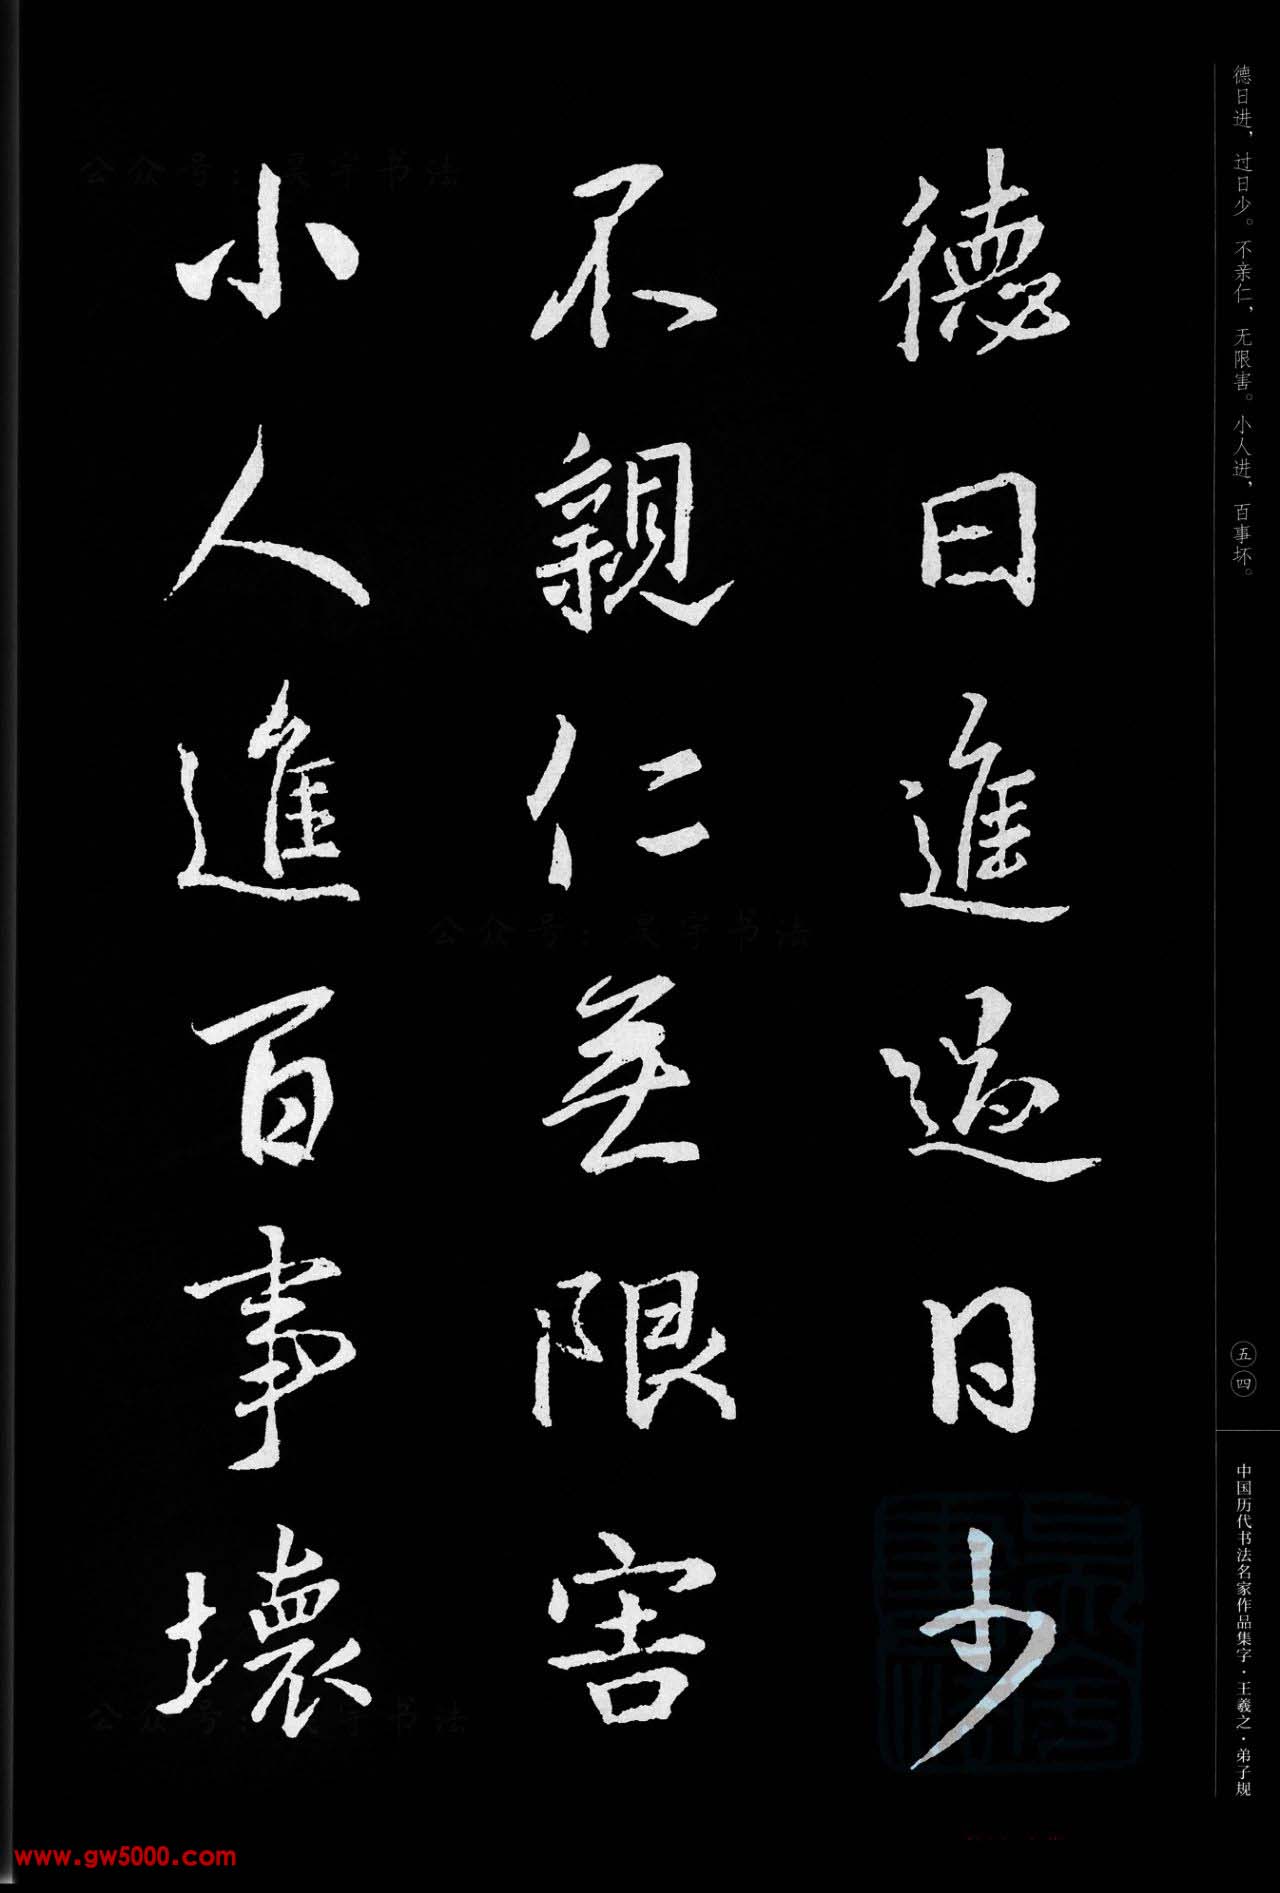 德日進過日少
不親仁無限害
小人進百事壞
德日进，过日少。不亲仁，无限害。小人进，百事坏。
五四
中国历代书法名家作品集字·王羲之·弟子规
公众号：昊宇书法
公众号：昊宇书法
公众号：昊宇书法
www.gw5000.com